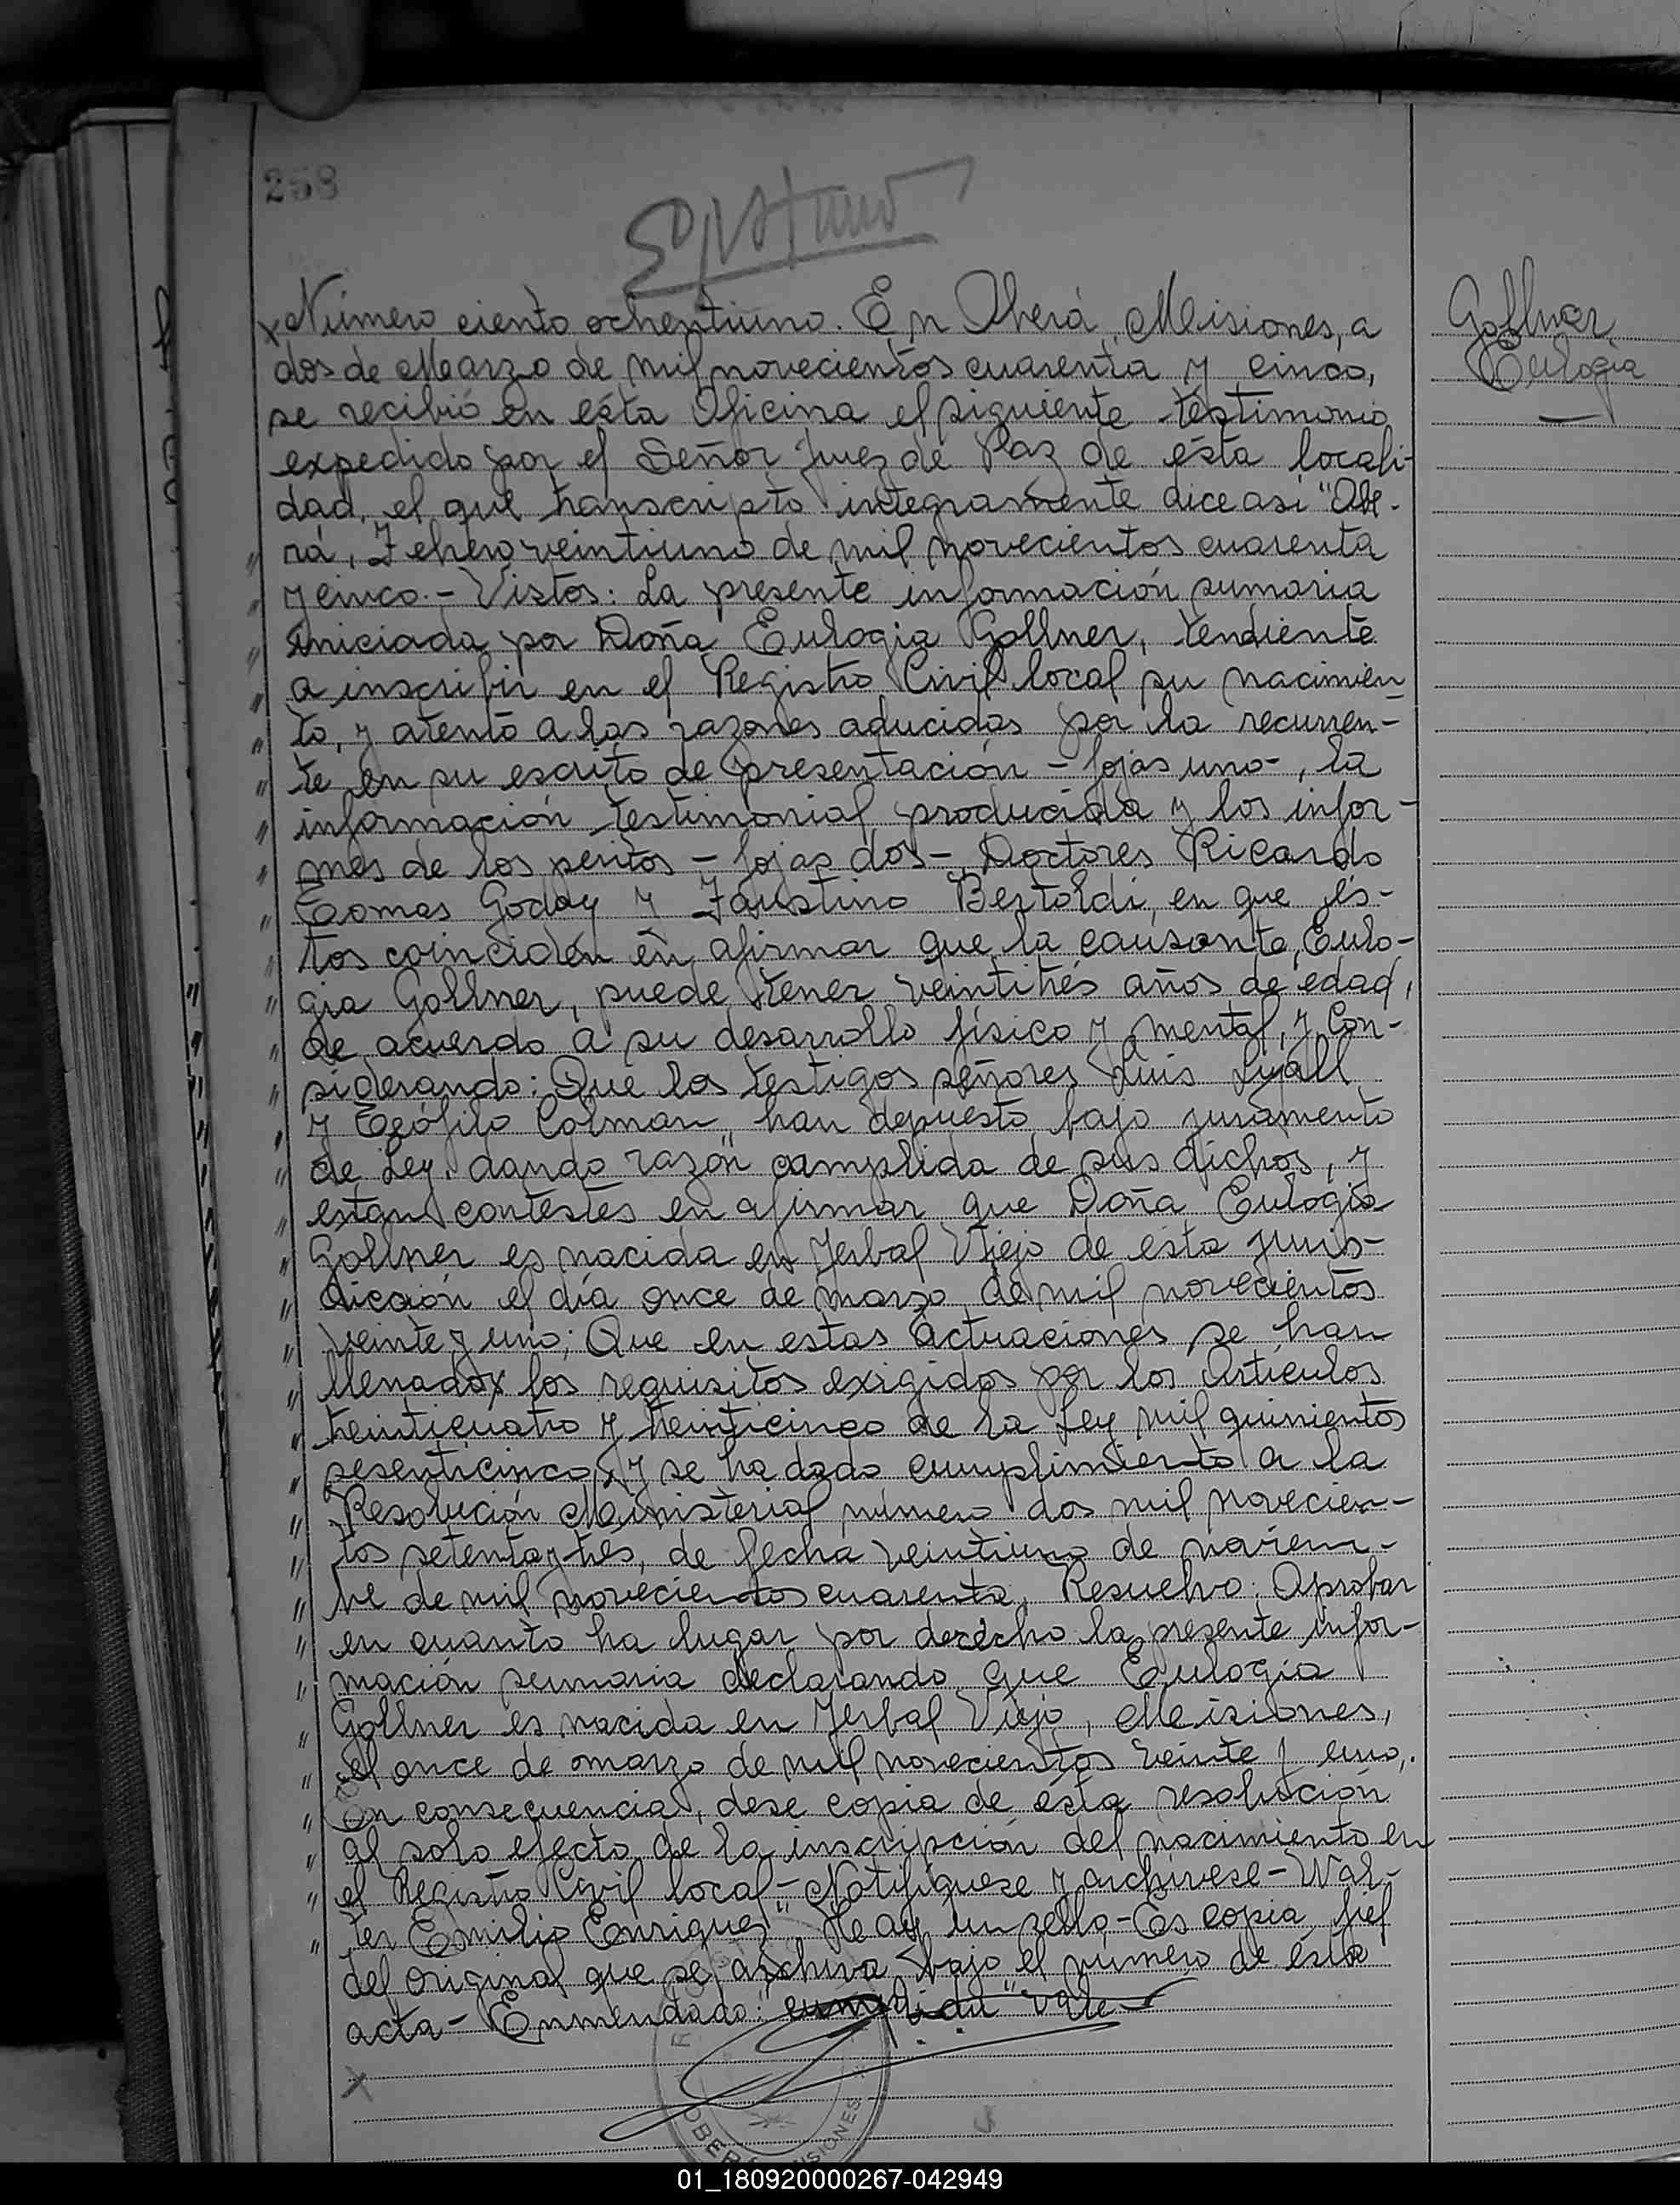 258
Número ciento ochentiuno. En Oberá, Misiones, a
Gollner
Eulogia
dos de Marzo de mil novecientos cuarenta y cinco,
se recibió en ésta Oficina el siguiente testimonio
expedido por el Señor Juez de Paz de ésta locali-
dad, el que transcripto integramente dice asi "Obe-
" rá, Febrero veintiuno de mil novecientos cuarenta
" y cinco.- Vistos: La presente información sumaria
" iniciada por Doña Eulogia Gollner, tendiente
" a inscribir en el Registro Civil local su nacimien-
" to, y atento a las razones aducidas por la recurren-
" te en su escrito de presentación - fojas uno-, la
" información testimonial producida y los infor-
" mes de los peritos - fojas dos- Doctores Ricardo
" Tomas Goday y Faustino Bertoldi, en que és-
" tos coinciden en afirmar que la causante, Eulo-
" gia Gollner, puede tener veintitrés años de edad,
" de acuerdo a su desarrollo físico y mental, y Con-
" siderando: Que los testigos señores Luis Lyall
" y Teófilo Colman, han depuesto bajo juramento
" de Ley, dando razón cumplida de sus dichos, y
" estan contestes en afirmar que Doña Eulogia
" Gollner es nacida en Yerbal Viejo de ésta juris-
" dicción el día once de marzo de mil novecientos
" veinte y uno; Que en estas actuaciones se han
" llenado los requisitos exigidos por los Artículos
" treinticuatro y treinticinco de la Ley mil quinientos
" sesenticinco, y se ha dado cumplimiento a la
" Resolución Ministerial número dos mil novecien-
" tos setenta y tres, de fecha veintiuno de noviem-
" bre de mil novecientos cuarenta, Resuelvo: Aprobar
" en cuanto ha lugar por derecho la presente infor-
" mación sumaria declarando que Eulogia
" Gollner es nacida en Yerbal Viejo, Misiones,
" el once de marzo de mil novecientos veinte y uno,.
" En consecuencia, dese copia de ésta resolución
" al solo efecto de la inscripción del nacimiento en
" el Registro Civil local.- Notifíquese y archivese - Wal-
" ter Emilio Enriquez" Hay un sello - Es copia fiel
del original que se archiva bajo el número de ésta
acta - Enmendado: "cumplida" Vale
OBERÁ MISIONES
01_180920000267-042949